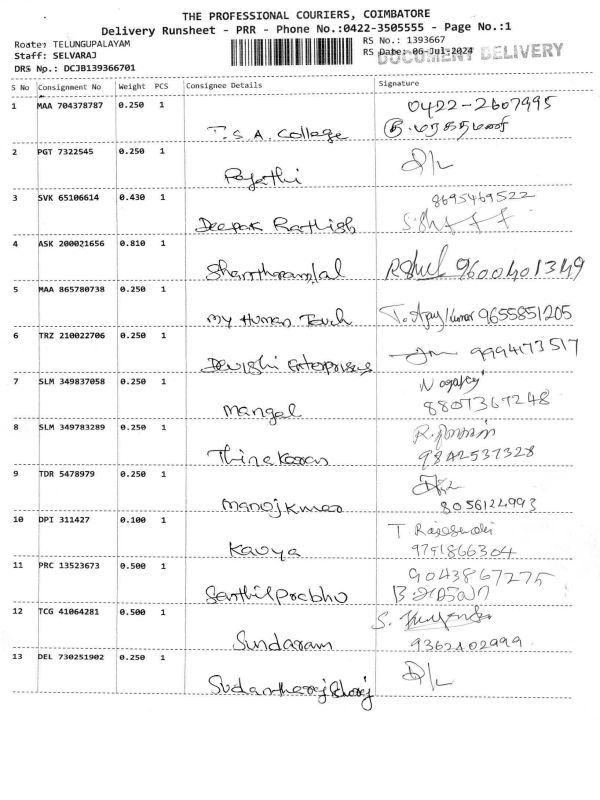 THE PROFESSIONAL COURIERS, COIMBATORE
Delivery Runsheet - PRR - Phone No.:0422-3505555 - Page No.:1
Route: TELUNGUPALAYAM
RS No.: 1393667
Staff: SELVARAJ
RS Date: 06-Jul-2024
DOCUMENT DELIVERY
DRS No.: DCJB139366701
S No Consignment No Weight PCS Consignee Details Signature
1 MAA 704378787 0.250 1 T.S.A. College 0422-2607995
2 PGT 7322545 0.250 1 D/L
3 SVK 65106614 0.430 1 Deepak 8695469522
4 ASK 200021656 0.810 1 9600401349
5 MAA 865780738 0.250 1 My Human Touch T. Ajay Kumar 9655851205
6 TRZ 210022706 0.250 1 Enterprises 9994173517
7 SLM 349837058 0.250 1 Mangal
8807367248
8 SLM 349783289 0.250 1 Thinakaran
9842537328
9 TDR 5478979 0.250 1 Manojkumar
8056124993
10 DPI 311427 0.100 1 Kavya
9791866304
11 PRC 13523673 0.500 1 Senthil Prabhu 9043867275
12 TCG 41064281 0.500 1 Sundaram
9362402999
13 DEL 730251902 0.250 1 D/L